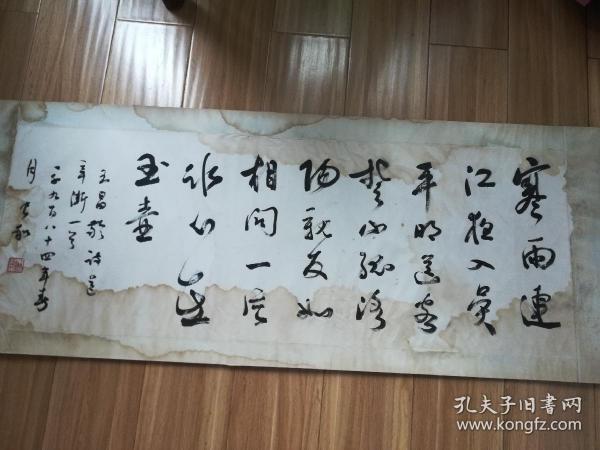 寒雨連
江夜入吴
平明送客
楚山孤洛
陽親友如
相問一片
冰心在
玉壶
王昌齡詩送
辛漸一首
一九百八十四年春
月
孔夫子旧书网
www.kongfz.com